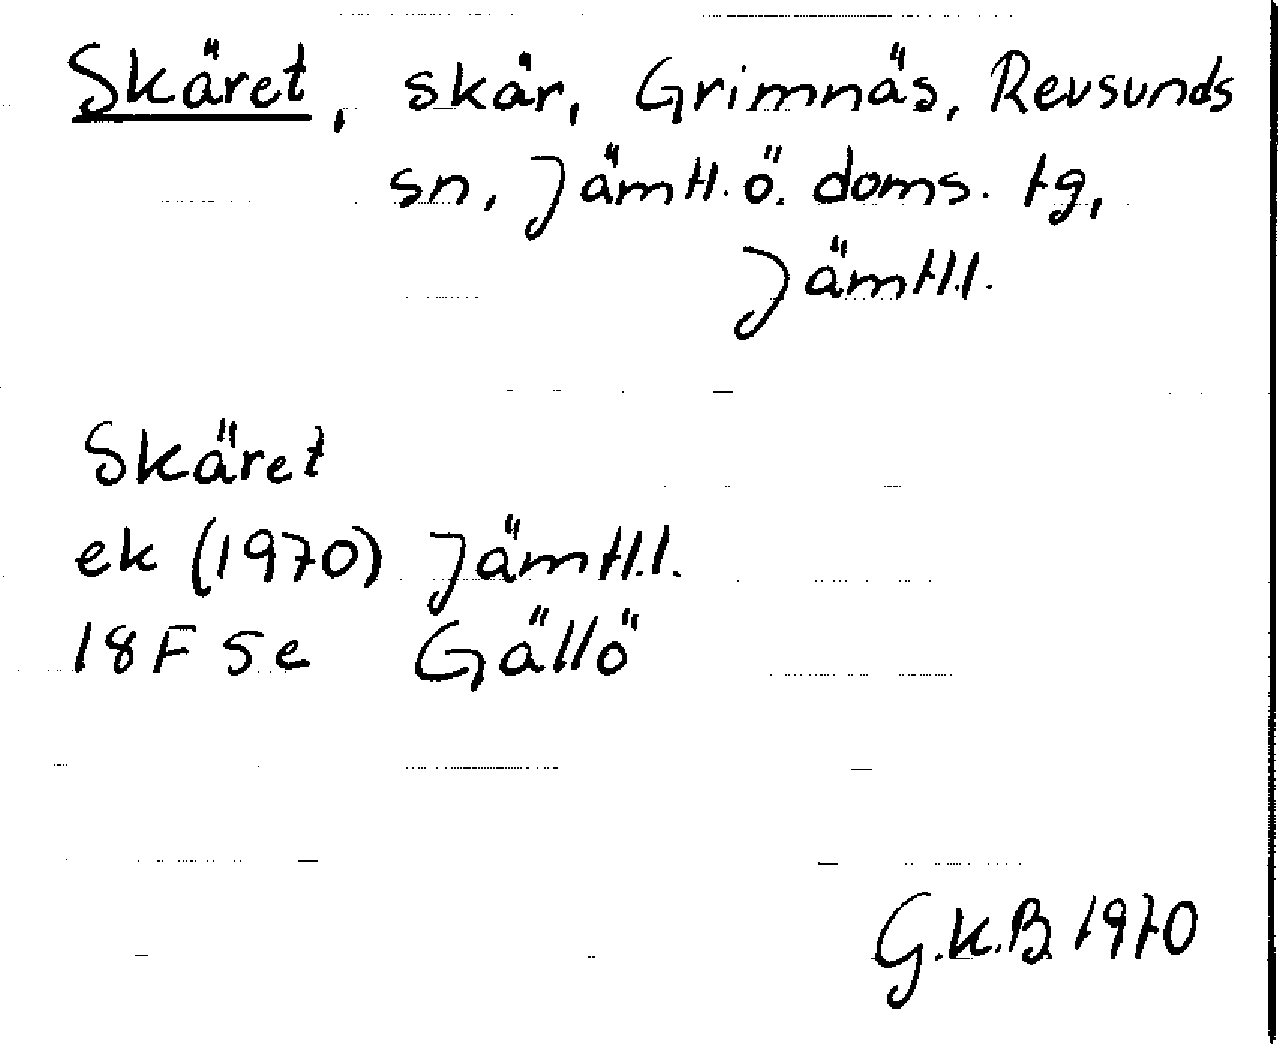 Skäret, skär, Grimnäs, Revsunds
sn, Jämtl. ö. doms. tg,
Jämtl.l.
Skäret
ek (1970) Jämtl.l.
18F 5e Gällö
G.K.B. 1970